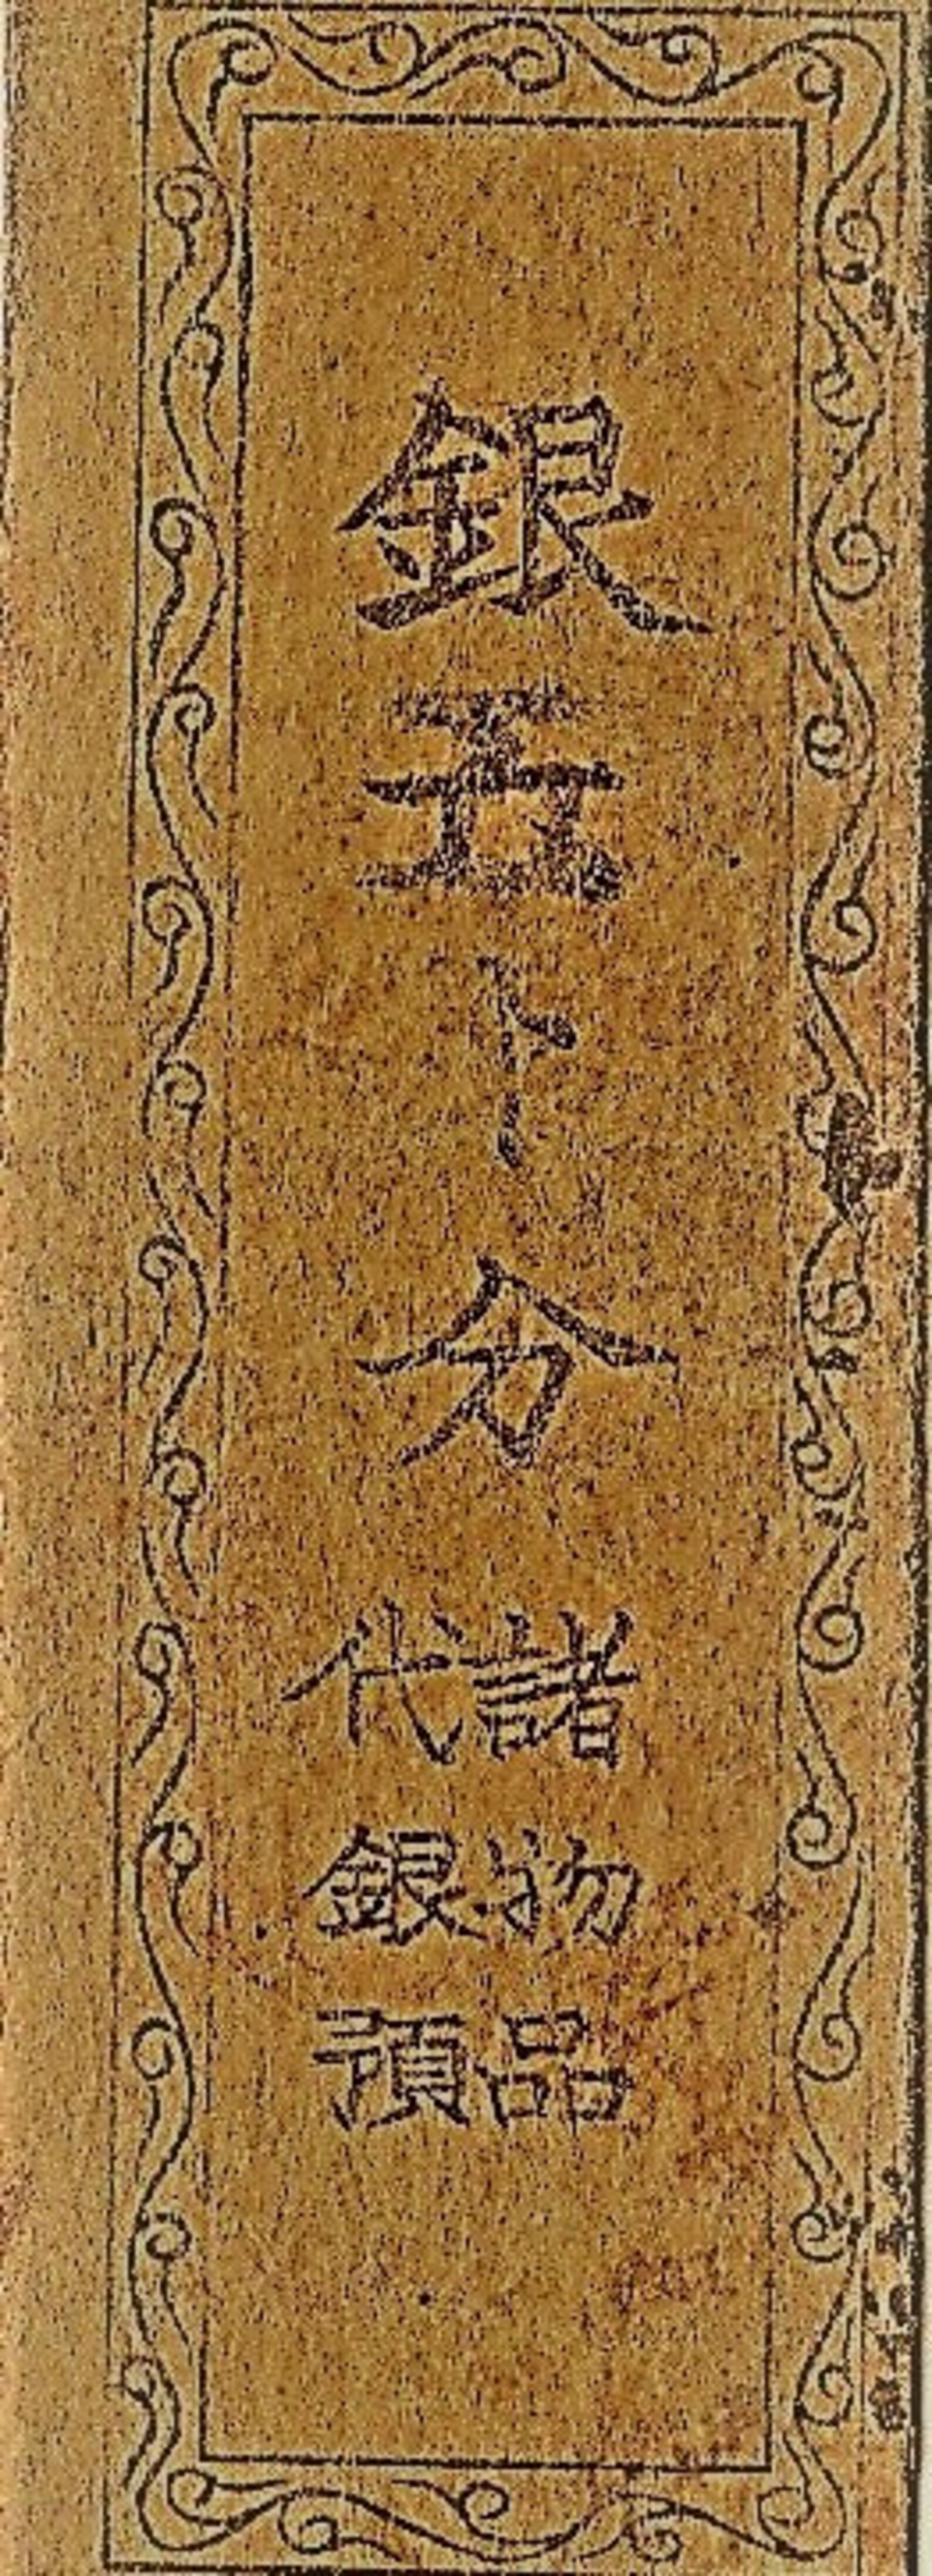 銀五卜分
諸物品
代銀預